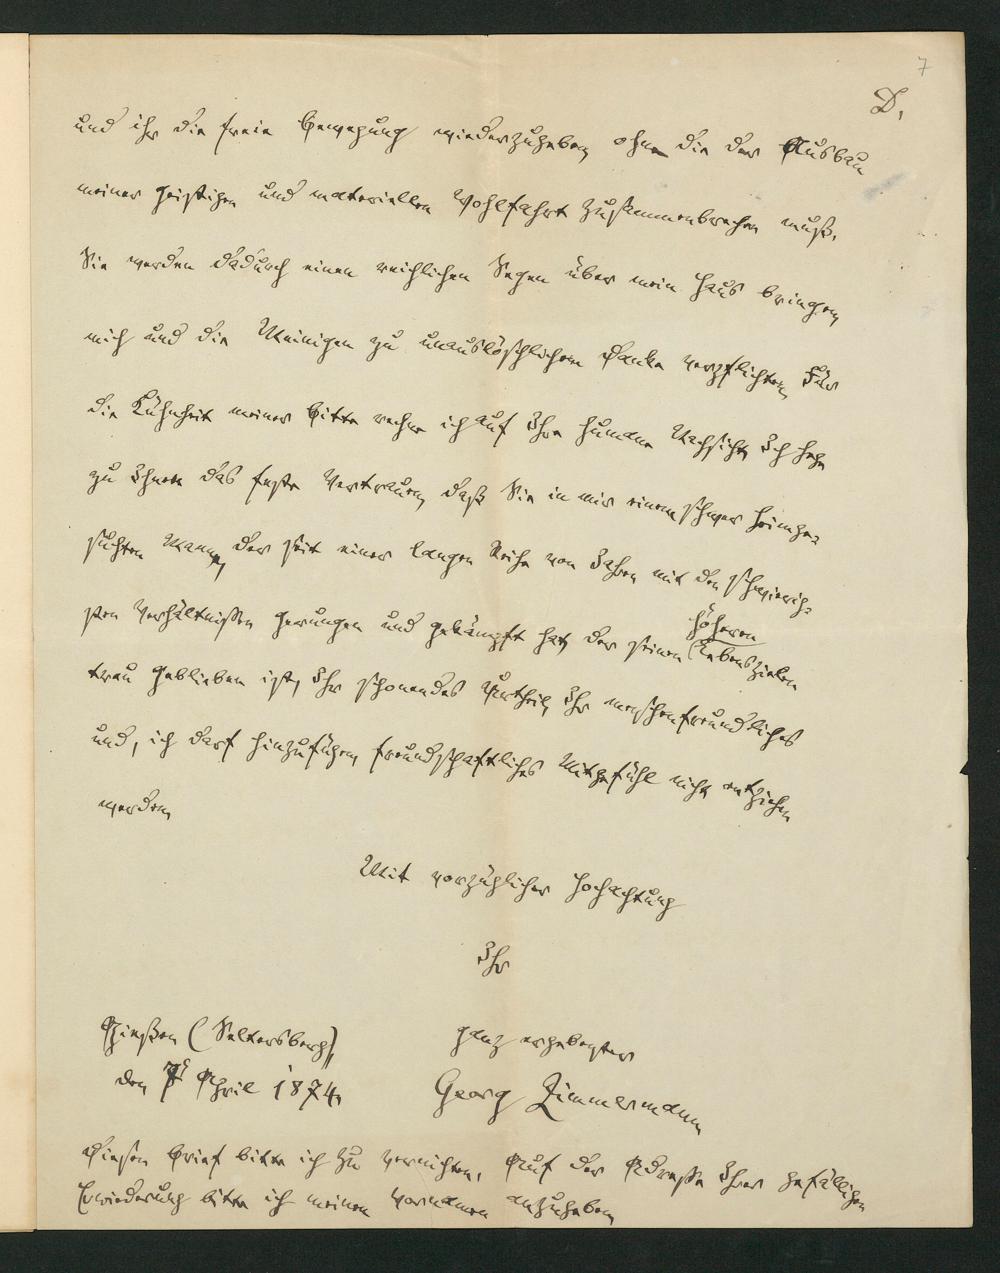 7
D.
und ihr die freie Bewegung wiederzugeben, ohne die der Ausbau
meiner geistigen und materiellen Wohlfahrt zusammenbrechen muß.
Sie werden dadurch einen reichlichen Segen über mein Haus bringen,
mich und die Meinigen zu unauslöschlichem Danke verpflichten. Für
die Kühnheit meiner Bitte rechne ich auf Ihre humane Nachsicht. Ich hege
zu Ihnen das feste Vertrauen, daß Sie in mir einem schwer heimge-
suchten Mann, der seit einer langen Reihe von Jahren mit den schwierig-
sten Verhältnissen gerungen und gekämpft hat, der seinen höheren Lebenszielen
treu geblieben ist, Ihr schonendes Urtheil, Ihr menschenfreundliches
und, ich darf hinzufügen, freundschaftliches Mitgefühl nicht entziehen
werden.
Mit vorzüglicher Hochachtung
Ihr
Gießen (Seltersberg), ganz ergebenster
den 7t April 1874. Georg Zimmermann
Diesen Brief bitte ich zu vernichten. Auf der Adresse Ihrer gefälligen
Erwiederung bitte ich meinen Vornamen anzugeben.